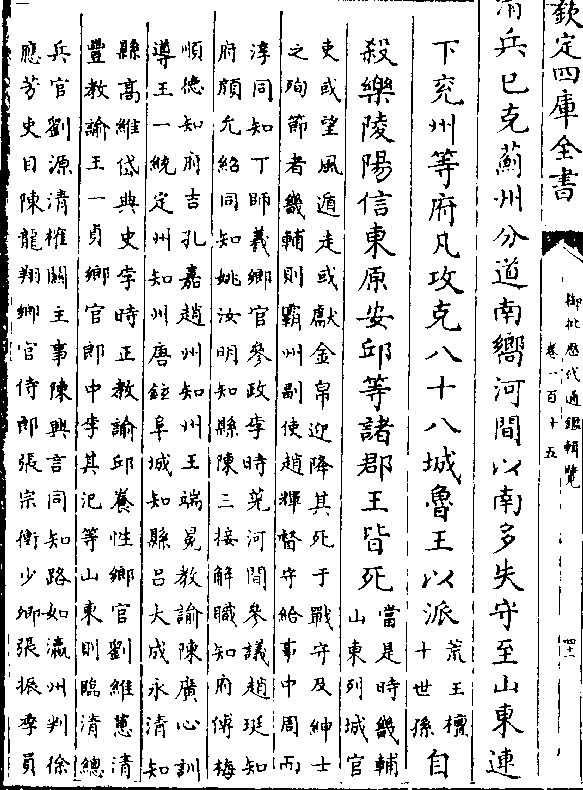 欽定四庫全書
御批歷代通鑑輯覽
卷一百十五
四十一
清兵已克薊州分道南嚮河間以南多失守至山東連
下兗州等府凡攻克八十八城魯王以派
荒王檀
十世孫
自
殺樂陵陽信東原安邱等諸郡王皆死
當是時畿輔
山東列城官
吏或望風遁走或獻金帛迎降其死于戰守及紳士
之殉節者畿輔則霸州副使趙煇督守給事中周而
淳同知丁師羲鄉官參政李時莞河間參議趙珽知
府顏允紹同知姚汝明知縣陳三接解職知府傅梅
順德知府吉孔嘉趙州知州王端冕教諭陳廣心訓
導王一統定州知州唐鉉阜城知縣吕大成永清知
縣高維岱典史李時正教諭邱養性鄉官劉維蕙清
豐教諭王一貞鄉官郎中李其汜等山東則臨清總
兵官劉源清榷關主事陳興言同知路如瀛州判徐
應芳史目陳龍翔鄉官侍郎張宗衡少卿張振秀員